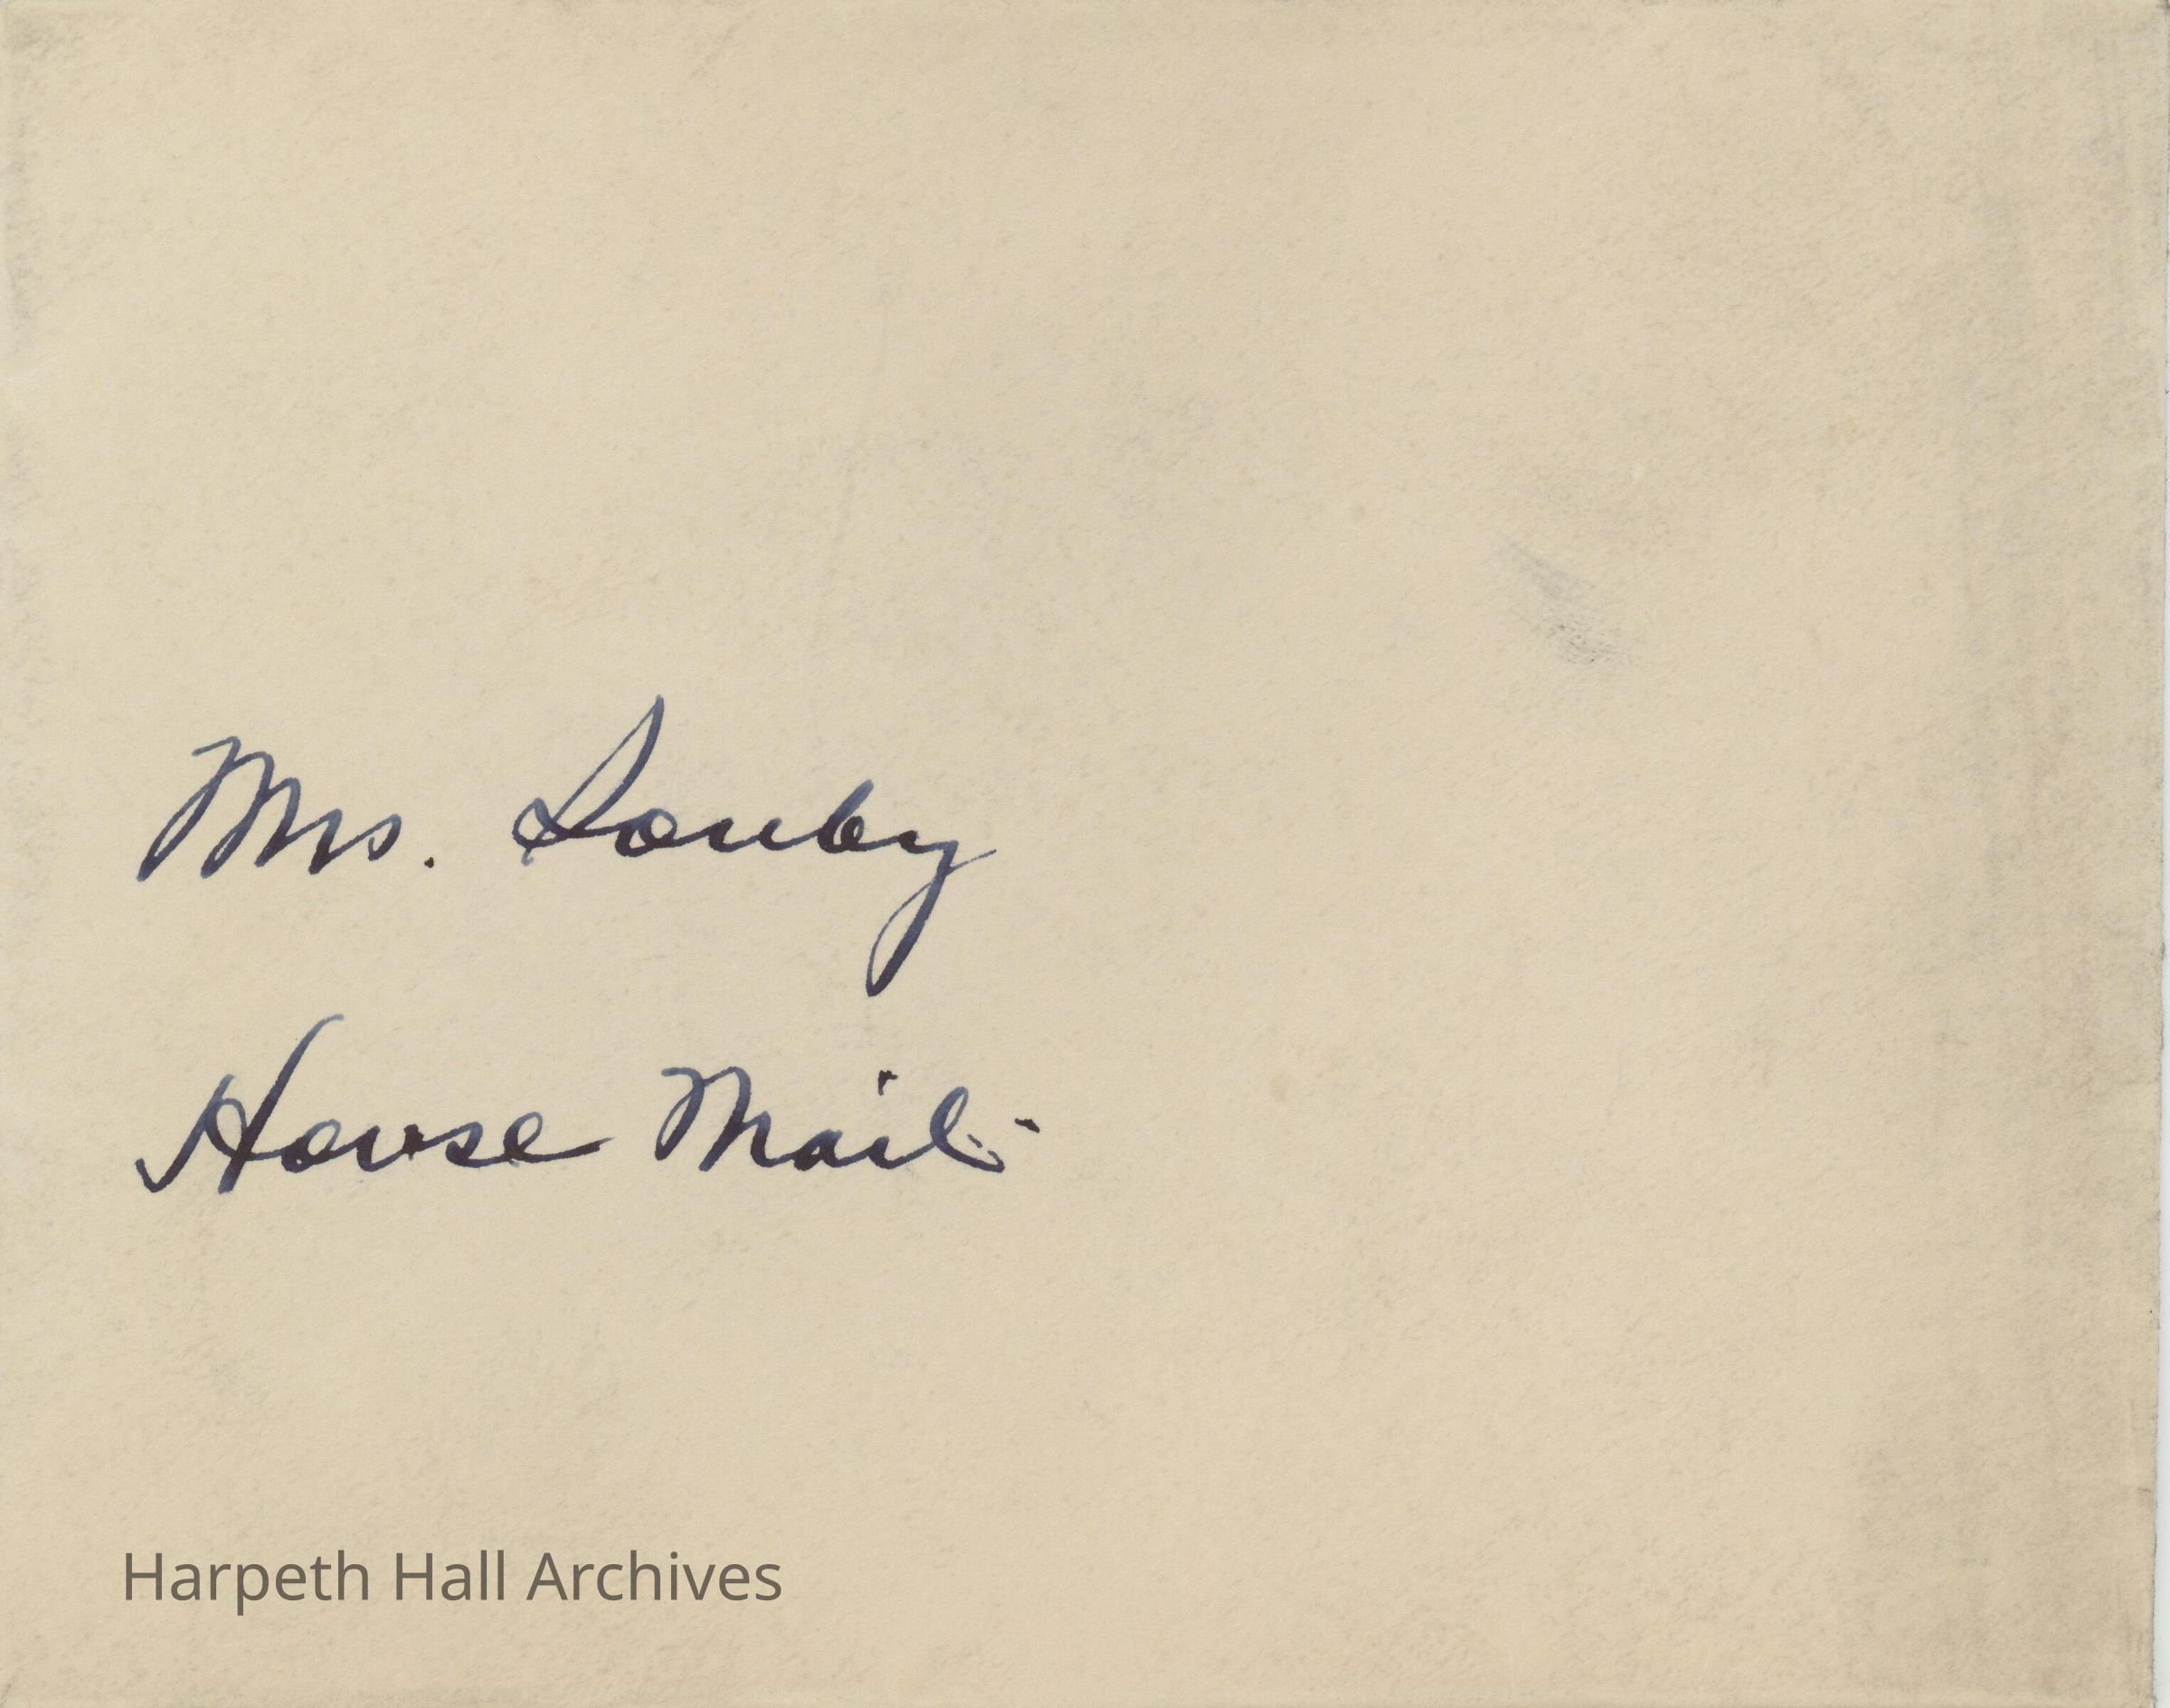 Mrs. Souby
House Mail -
Harpeth Hall Archives